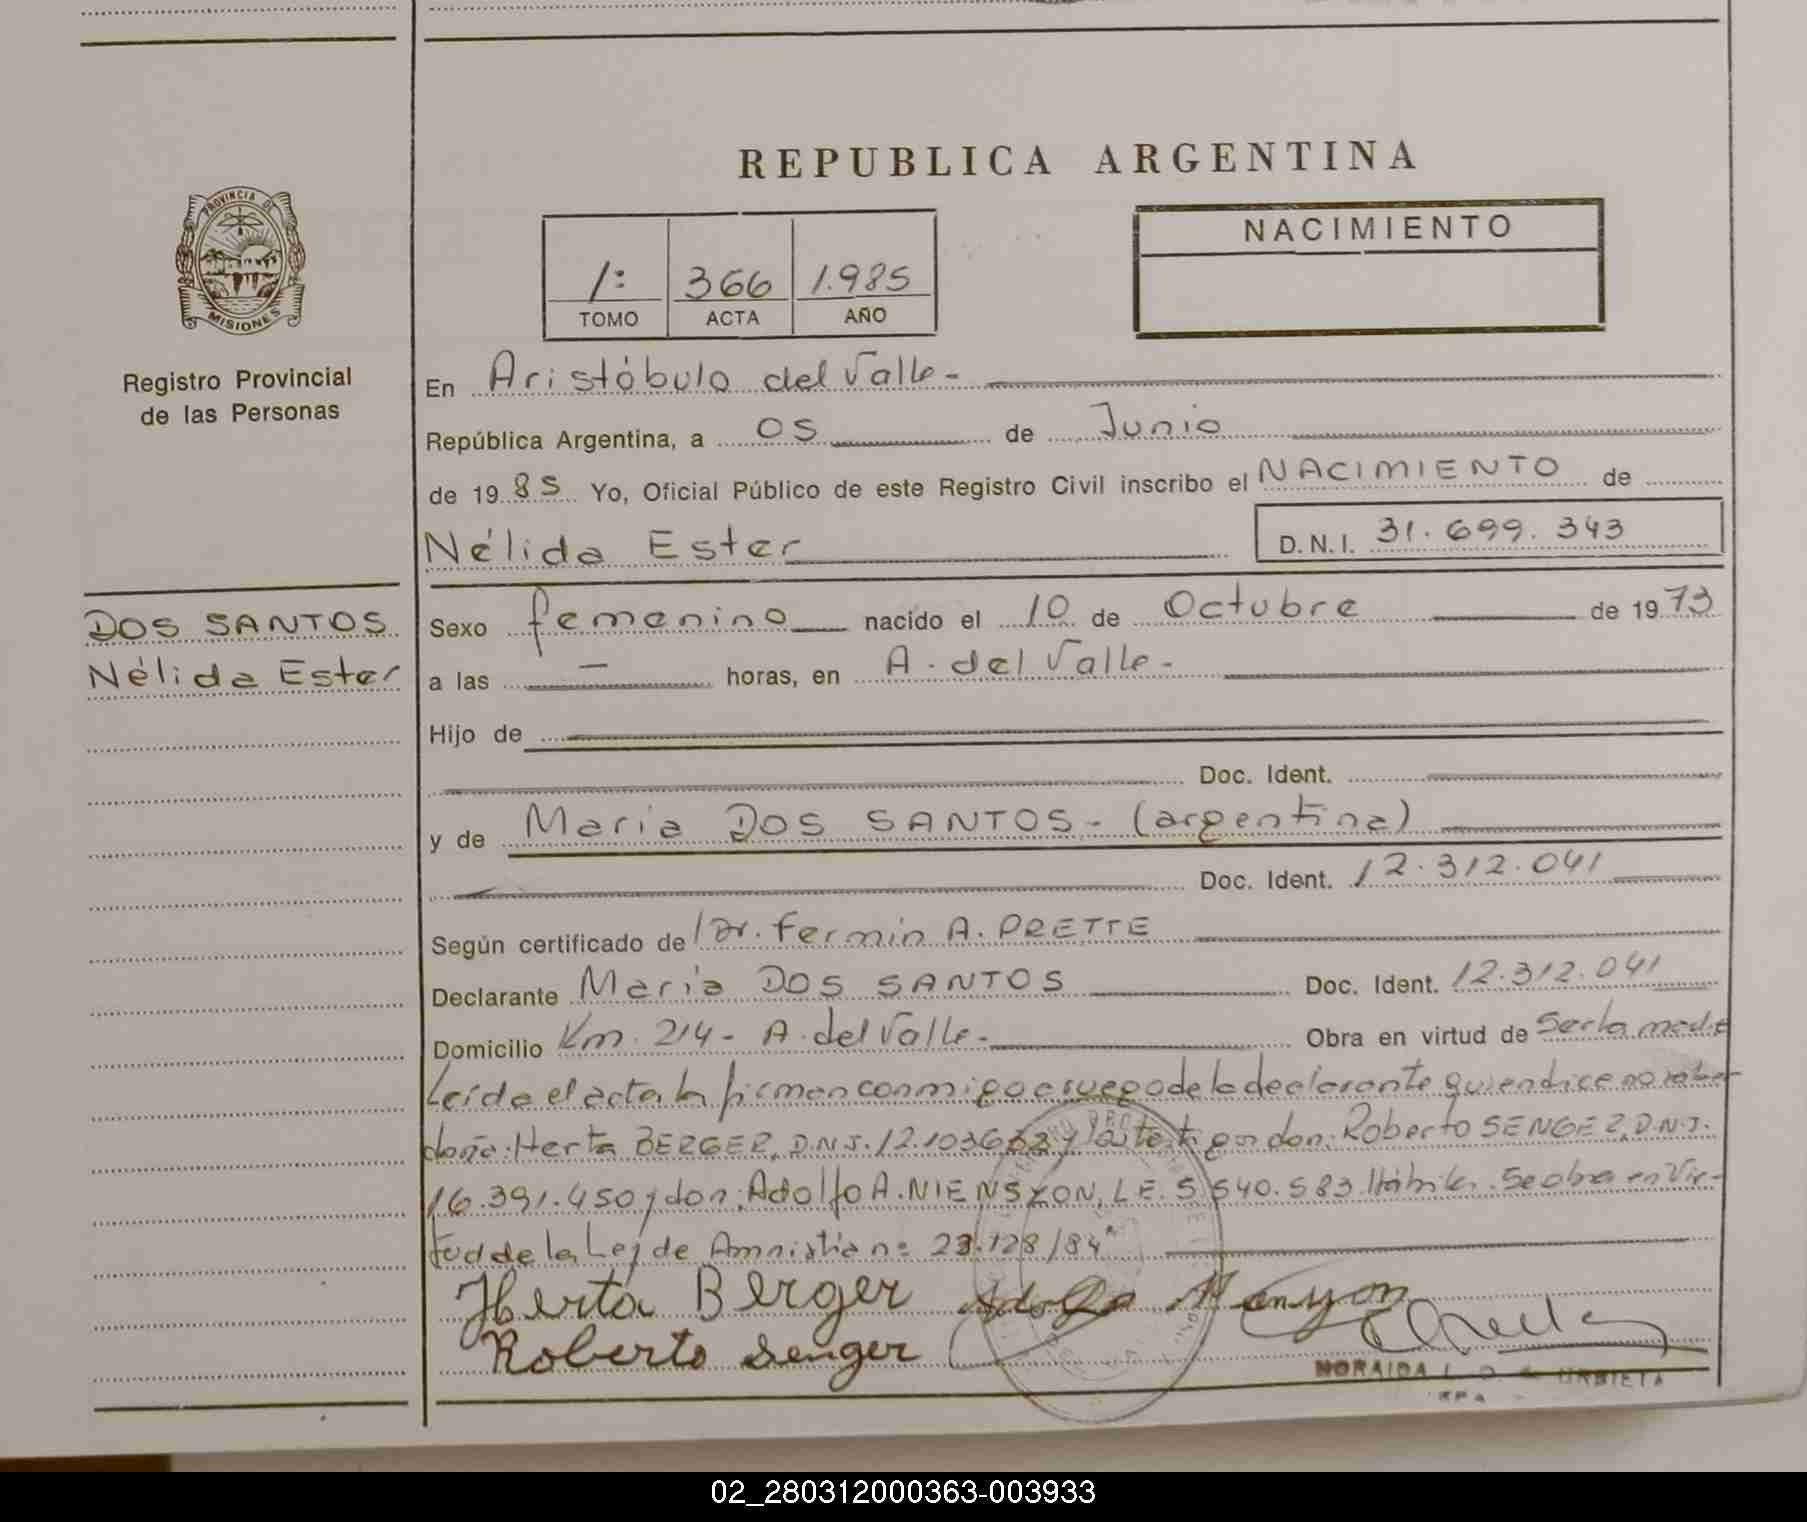 REPUBLICA ARGENTINA
PROVINCIA DE
MISIONES
Registro Provincial
de las Personas
1: 366 1.985
TOMO ACTA AÑO
NACIMIENTO
En Aristóbulo del Valle-
República Argentina, a 05 de Junio
de 1985 Yo, Oficial Público de este Registro Civil inscribo el NACIMIENTO de
Nélida Ester D.N.I. 31.699.343
DOS SANTOS
Nélida Ester
Sexo femenino nacido el 10 de Octubre de 1973
a las — horas, en A. del Valle-
Hijo de
Doc. Ident.
y de Maria DOS SANTOS- (argentina)
Doc. Ident. 12.312.041
Según certificado de Dr. Fermín A. PRETTE
Declarante Maria DOS SANTOS Doc. Ident. 12.312.041
Domicilio Km. 214- A. del Valle- Obra en virtud de Ser la madre
Leída el acta la firman conmigo a ruego de la declarante quien dice no saber
doña: Herta BERGER, D.N.I. y los testigos don: Roberto SENGER, D.N.I.
16.391.450 y don: Adolfo A. NIENSXON, L.E. 5.540.583 Hábiles. Se obra en Vir-
tud de la Ley de Amnistia nº 23.128/84"
Herta Berger
Roberto Senger
NORAIDA URBIETA
02_280312000363-003933